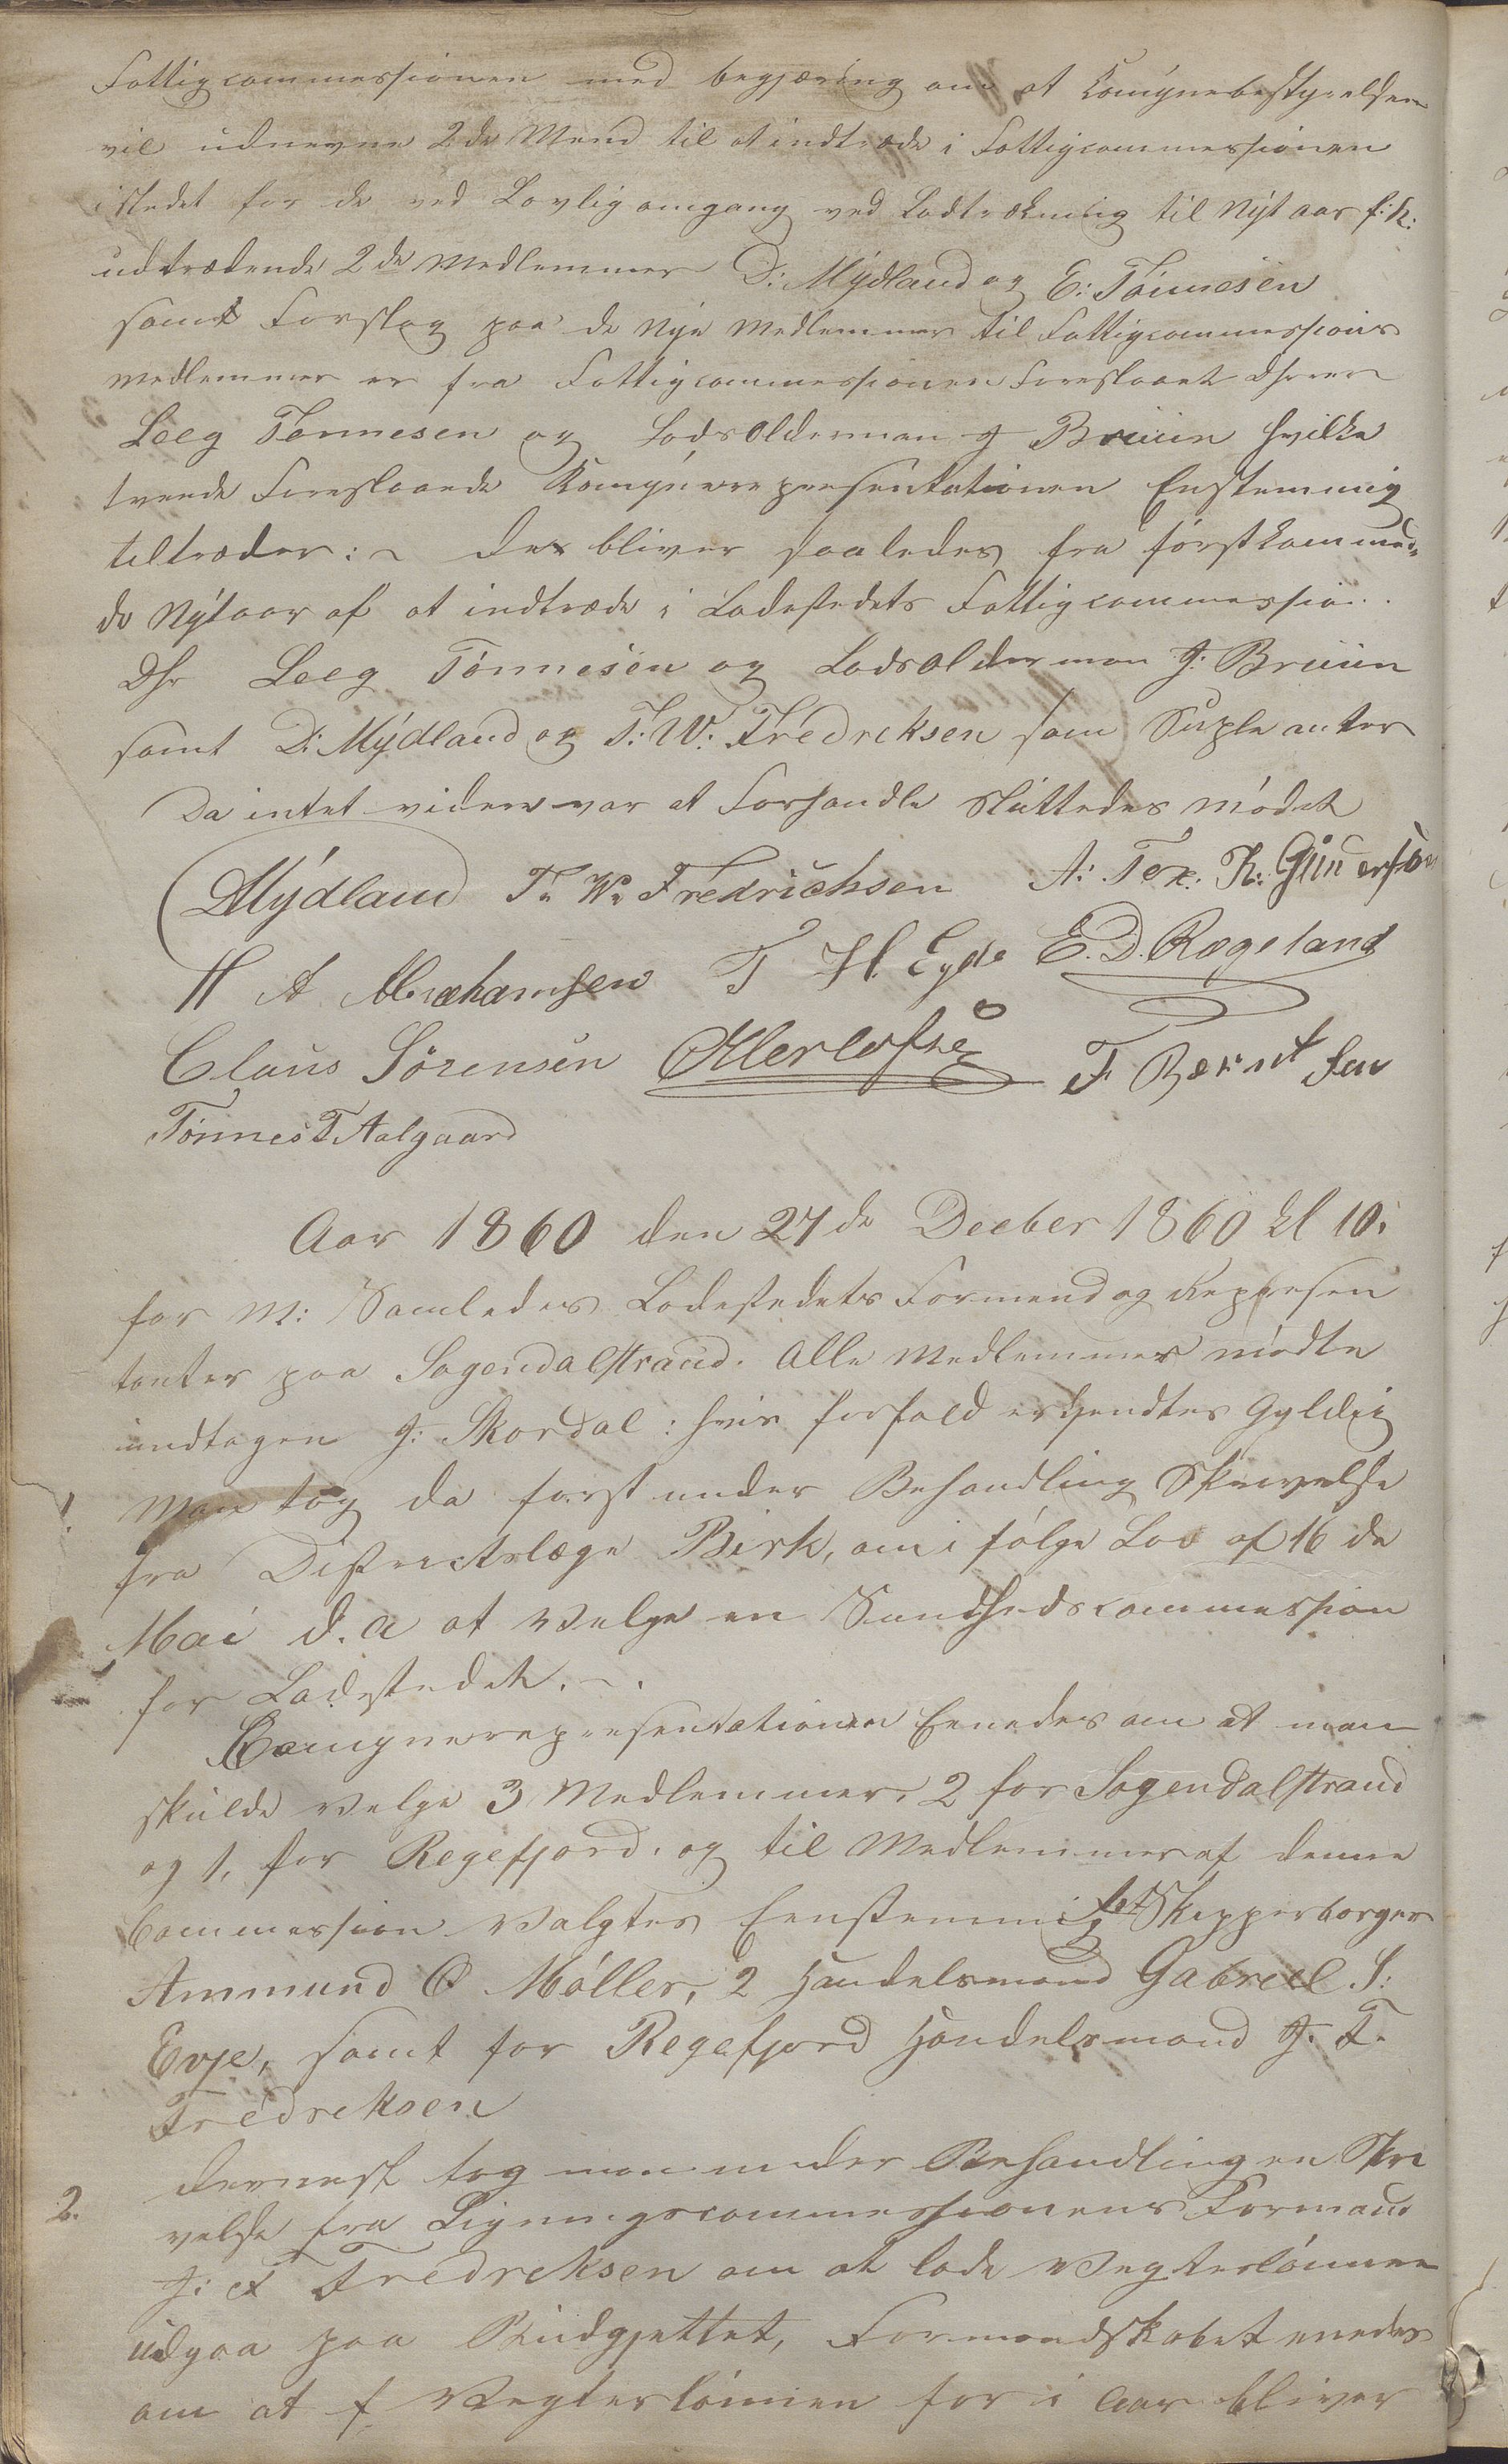 Fattigcommessionen med begjæring om at Comynebestyrelsen
vil udnevne 2de Mend til at indtræde i Fattigcommessionen
istedet for de ved Lovlig omgang ved Lodtrækning til Nytaar f: k:
udtrædende 2de Medlemmer D: Mydland og E: Tönnesen
samt Forslag paa de Nye Medlemmer til Fattigcommessions
medlemmer er fra Fattigcommessionen Foreslaaet Dhrrer
Leeg Tønnesen og Lodsolderman J Bruun hvilke
tvende Foreslaaede Komynerepresentationen Enstemmig
tiltræder: ~ Der bliver saaledes fra førstkommend-
de Nytaar af at indtræde i Ladestedets Fattigcommession.
Dhr Leeg Tönnesen og Lodsolderman J: Bruun
samt D: Mydland og T: W: Fredreksen som Supleanter
Da intet videre var at Forhandle sluttedes mødet
DMydland T. W. Fredrichsen A: Ter. K: Gundersen
H A Abrahamsen T H. Eyde E. D. Rægeland
Claus Sörensen OHerlofsen F Berntsen
Tönnes T Aalgaard
Aar 1860 den 27de Deeber 1860 kl 10.
for M: Samledes Ladestedets Formend og Represen
tanter paa Sogendalstrand. Alle Medlemmer mødte
undtagen J: Skordal: hvis forfald erkjendtes Gyldig
1. Man tog da først under Behandling Skrivelse
fra Districtslæge Birk, om i følge Lov af 16de
Mai d. A at velge en Sundhedscommession
for Ladestedet. ~.
Comynerepresentationen Enedes om at man
skulde velge 3 Medlemmer, 2 for Sogendalstrand
og 1, for Regefjord. og til Medlemmer af denne
Commession valgtes Eenstemmig Skipperborger
Ammund O Möller, 2 Handelsmand Gabreel S:
Evje, samt for Regefjord Handelsmand J. F.
Fredreksen
2. Dernest tog man under Behandling en Skri
velse fra Ligningscommessionens Formand
J: F Fredreksen om at lade Vegterlønnen
udgaa paa Budgjettet, Formandskabet enedes
om at Vegterlønnen for i Aar bliver